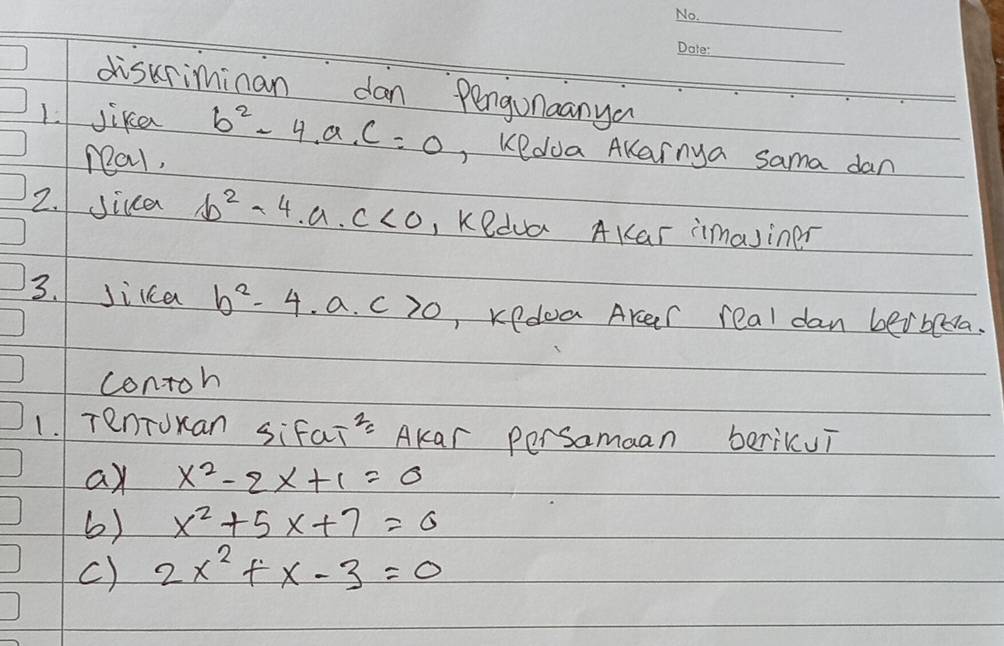 No.
Date:
diskriminan dan Pengunaanya
1. Jika b² - 4.a.c = 0, kedua Akarnya sama dan
real.
2. Jika b² - 4.a.c < 0, kedua Akar imajiner
3. Jika b² - 4.a.c > 0, kedua Akar real dan berbeda.
contoh
1. Tentukan sifat²= Akar persamaan berikut
a) x² - 2x + 1 = 0
b) x² + 5x + 7 = 0
c) 2x² + x - 3 = 0